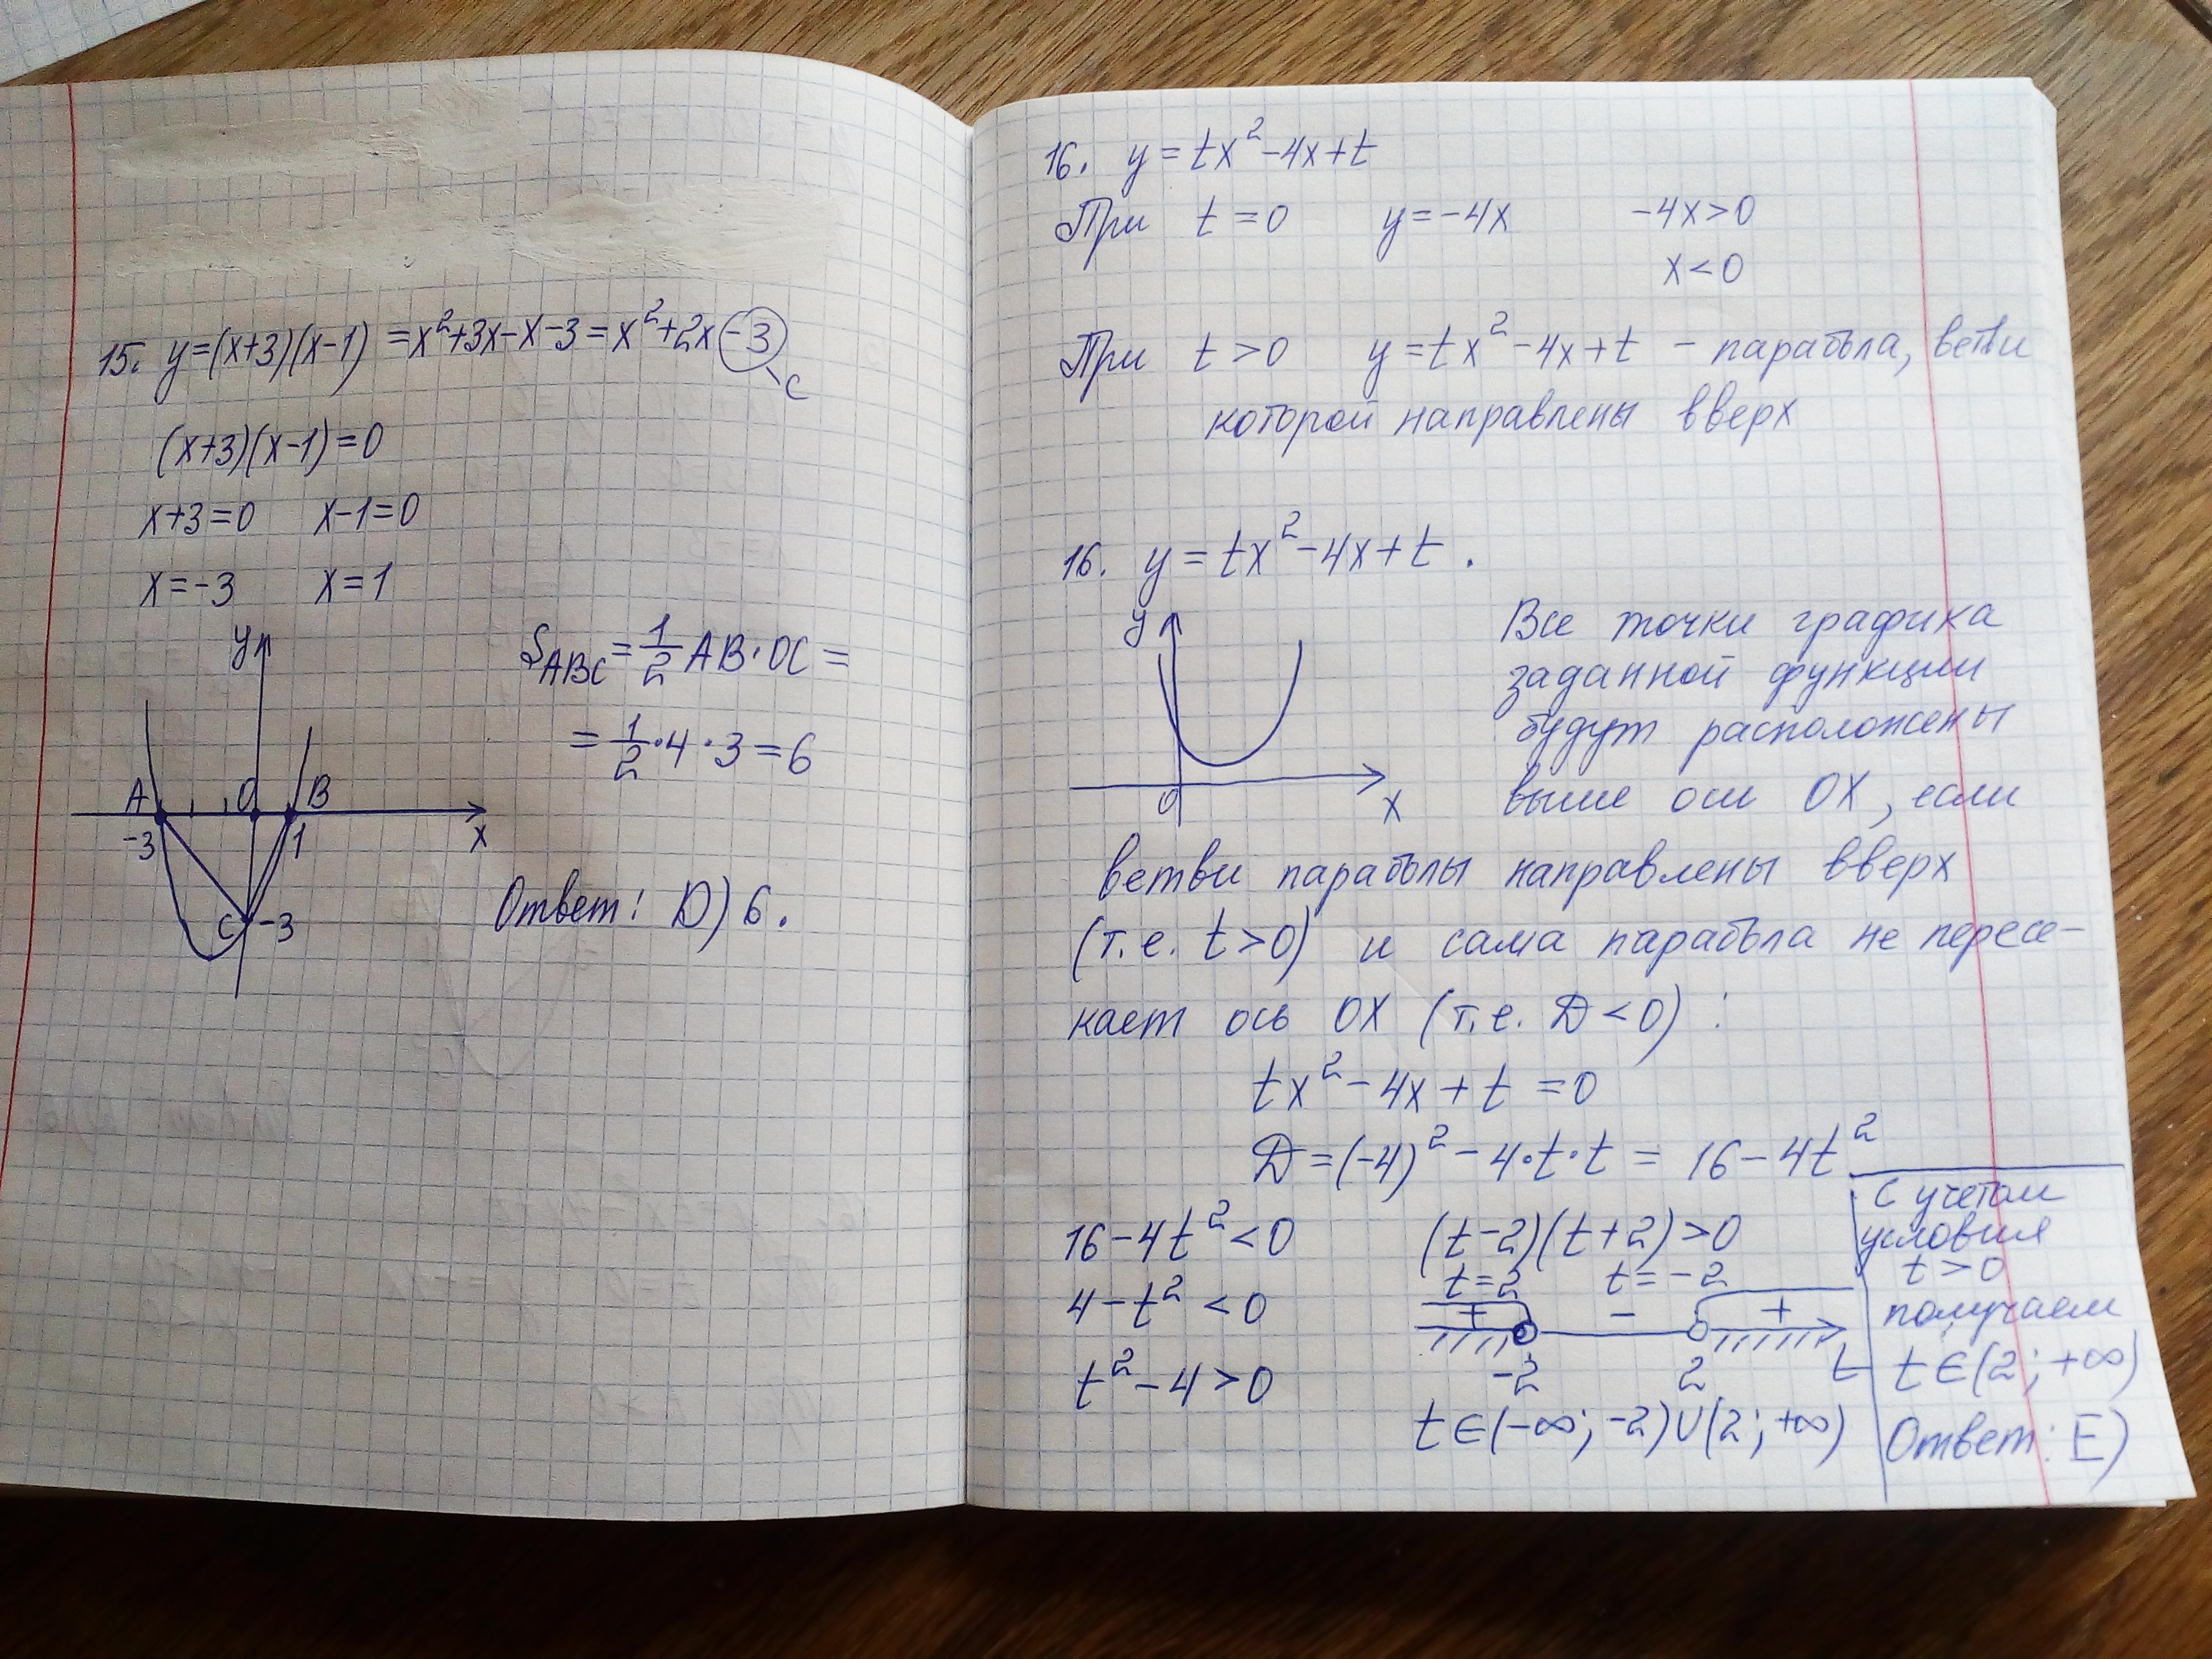 15. y=(x+3)(x-1) =x²+3x-x-3=x²+2x-3
c
(x+3)(x-1)=0
x+3=0 x-1=0
x=-3 x=1
y
A O B
-3 1 x
C -3
S_ABC = 1/2 AB·OC =
= 1/2·4·3=6
Ответ: D) 6.
16. y=tx²-4x+t
При t=0 y=-4x -4x>0
x<0
При t>0 y=tx²-4x+t - парабола, ветви
которой направлены вверх
16. y=tx²-4x+t.
y
0 x
Все точки графика
заданной функции
будут расположены
выше оси OX, если
ветви параболы направлены вверх
(т.е. t>0) и сама парабола не пересе-
кает ось OX (т.е. D<0):
tx²-4x+t=0
D=(-4)²-4·t·t=16-4t²
16-4t²<0
4-t²<0
t²-4>0
(t-2)(t+2)>0
t=2 t=-2
+ - +
-2 2 t
t∈(-∞;-2)∪(2;+∞)
С учетом
условия
t>0
получаем
t∈(2;+∞)
Ответ: E)